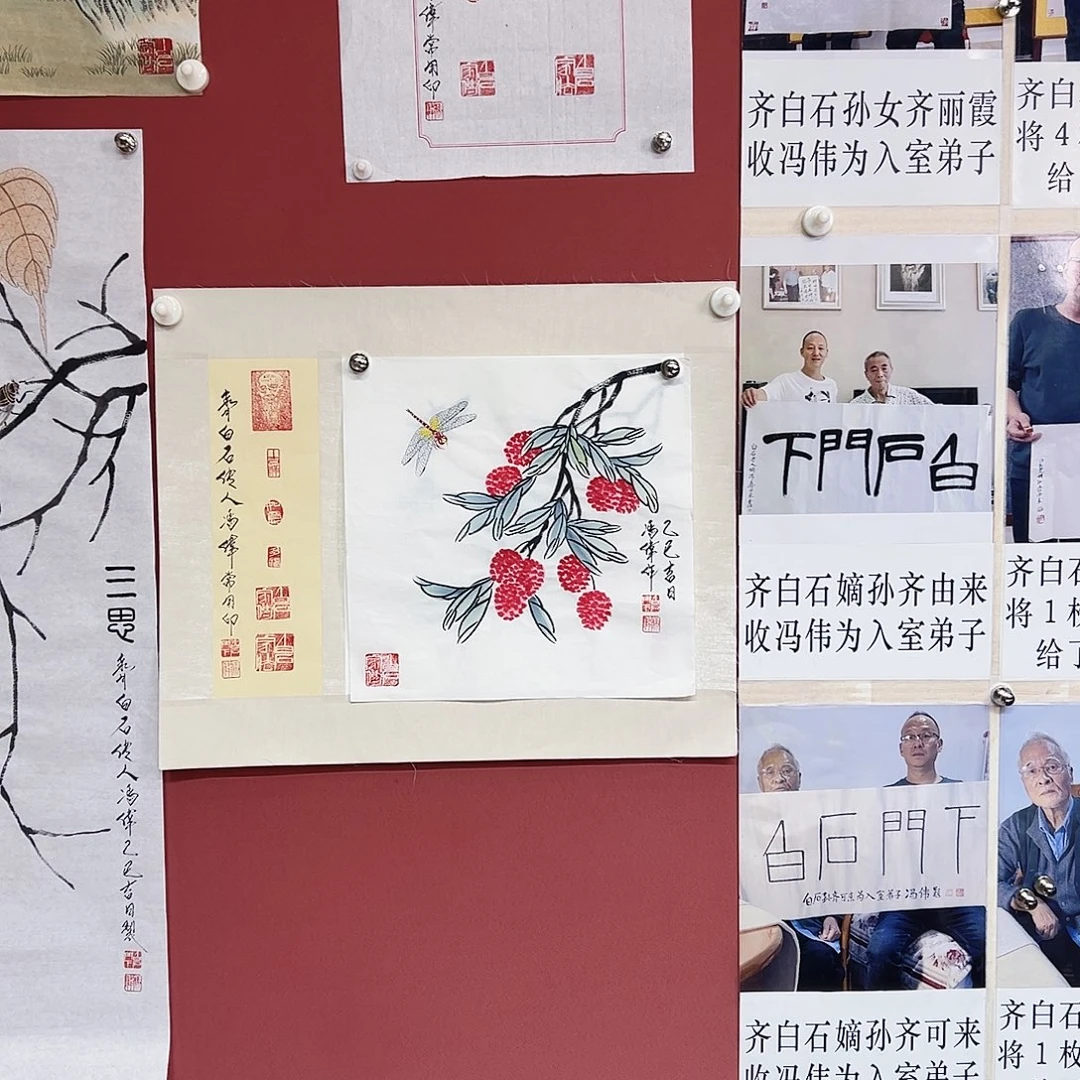 伟常用印
三思
齐白石传人冯伟乙巳吉日製
齐白石传人冯伟常用印
乙巳吉日
冯伟作
齐白石孙女齐丽霞
收冯伟为入室弟子
齐白
将4
给
下門石白
齐白石嫡孙齐由来
收冯伟为入室弟子
齐白石
将1枚
给了
白石門下
白石孙齐可来为入室弟子冯伟题
齐白石嫡孙齐可来
收冯伟为入室弟子
齐白石
将1枚